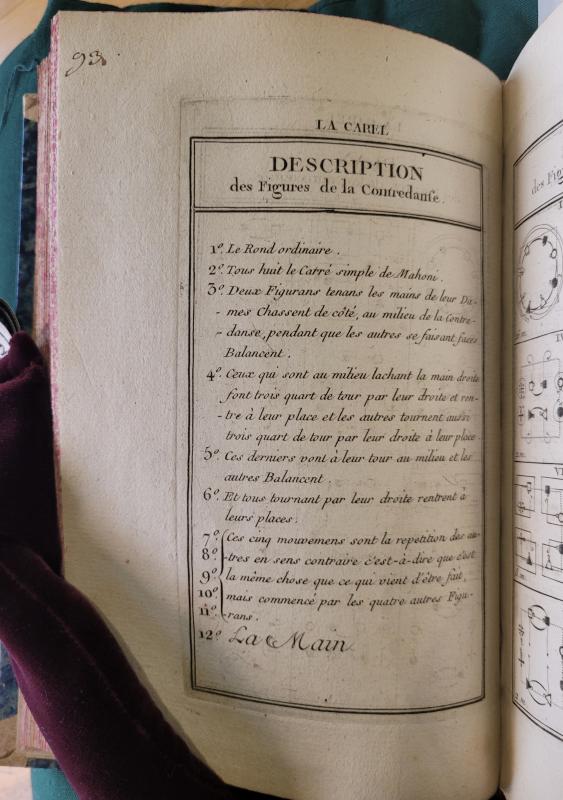 93.
LA CAREL
DESCRIPTION
des Figures de la Contredanse.
1.° Le Rond ordinaire.
2.° Tous huit le Carré simple de Mahoni.
3.° Deux Figurans tenans les mains de leur Da-
- mes Chassent de côté, au milieu de la Contre-
- danse, pendant que les autres se faisant faces
Balancent.
4.° Ceux qui sont au milieu lachant la main droite
font trois quart de tour par leur droite et ren-
- tre à leur place et les autres tournent aussi
trois quart de tour par leur droite à leur place.
5.° Ces derniers vont à leur tour au milieu et les
autres Balancent.
6.° Et tous tournant par leur droite rentrent à
leurs places.
7.° Ces cinq mouvemens sont la repetition des au-
8.° -tres en sens contraire c'est-à-dire que c'est
9.° la même chose que ce qui vient d'être fait,
10.° mais commencé par les quatre autres Figu-
11.° -rans.
12.° La Main